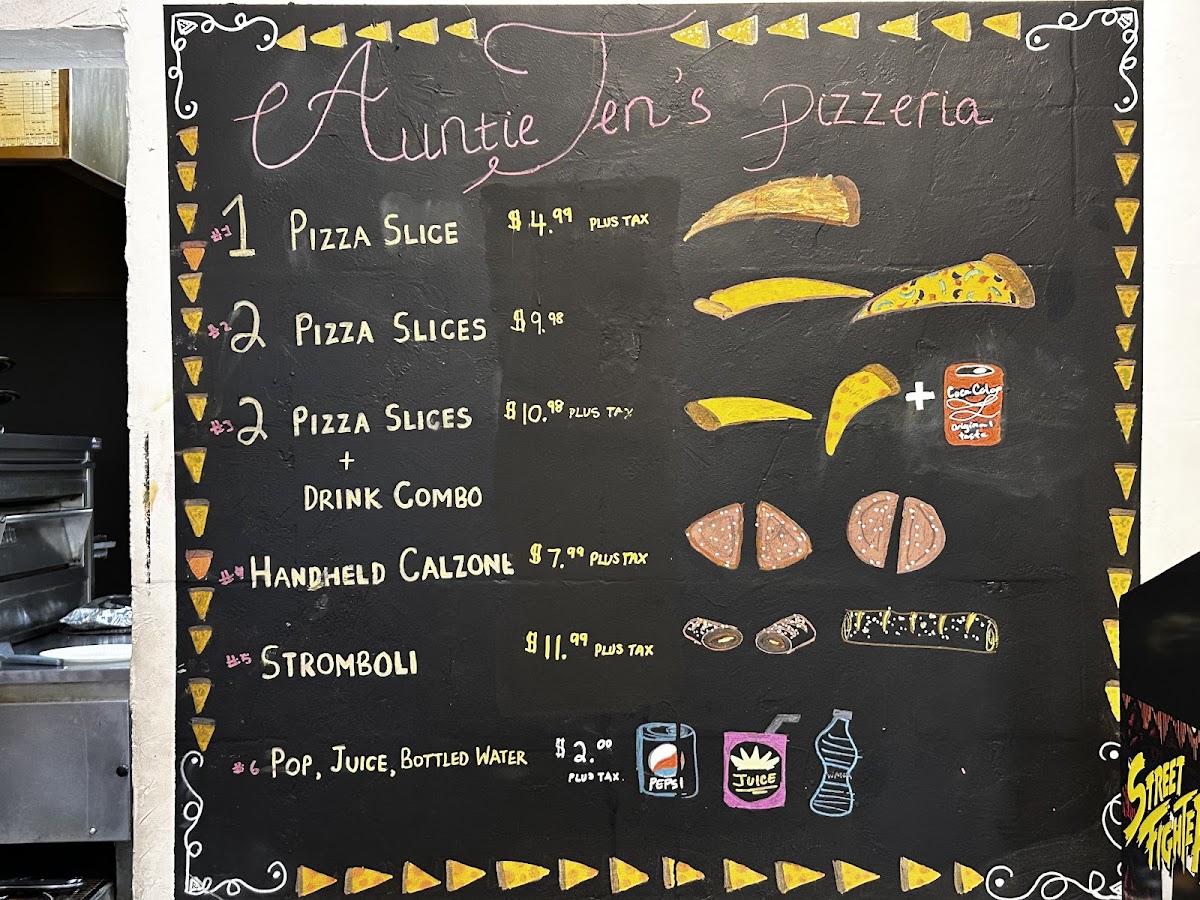 Auntie Jen's Pizzeria
#1 1 PIZZA SLICE $4.99 PLUS TAX
#2 2 PIZZA SLICES $9.98
#3 2 PIZZA SLICES $10.98 PLUS TAX
+
DRINK COMBO
Coca Cola
Original
taste
#4 HANDHELD CALZONE $7.99 PLUS TAX
#5 STROMBOLI $11.99 PLUS TAX
#6 POP, JUICE, BOTTLED WATER $2.00
PLUS TAX.
PEPSI
JUICE
STREET
FIGHTER